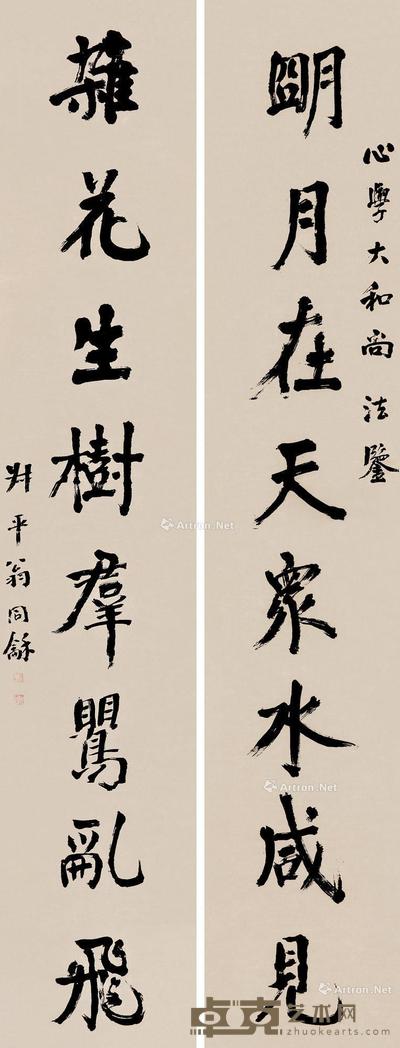 心學大和尚法鑒
朙月在天眾水咸見
雜花生樹羣鶯亂飛
尗平翁同龢
Artron.Net
Artron.Net
Artron.Net
卓克艺术网
zhuokearts.com